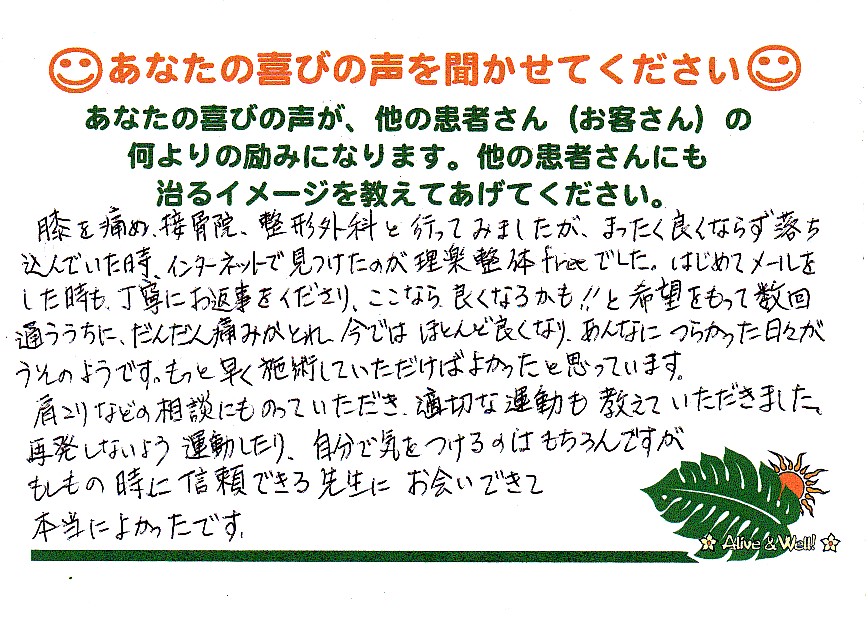 あなたの喜びの声を聞かせてください
あなたの喜びの声が、他の患者さん（お客さん）の
何よりの励みになります。他の患者さんにも
治るイメージを教えてあげてください。
膝を痛め、接骨院、整形外科と行ってみましたが、まったく良くならず落ち
込んでいた時、インターネットで見つけたのが理楽整体freeでした。はじめてメールを
した時も、丁寧にお返事をくださり、ここなら良くなるかも!!と希望をもって数回
通ううちに、だんだん痛みがとれ、今ではほとんど良くなり、あんなにつらかった日々が
うそのようです。もっと早く施術していただけばよかったと思っています。
肩こりなどの相談にものっていただき、適切な運動も教えていただきました。
再発しないよう運動したり、自分で気をつけるのはもちろんですが
もしもの時に信頼できる先生にお会いできて
本当によかったです。
Alive & Well!